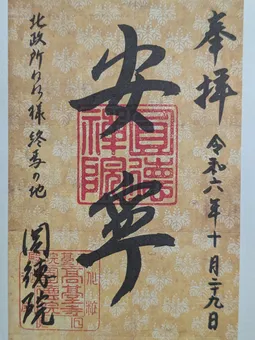 奉拝
令和六年十月二十九日
安寧
圓德禅院
北政所ねね様終焉の地
圓徳院